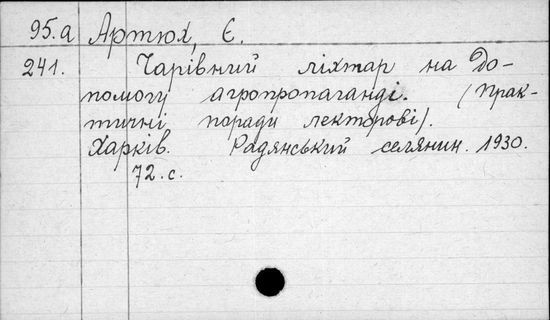 95.а Артюх, Є.
241. Чарівний ліхтар на до-
помогу агропропаганді. (Прак-
тичні поради лекторові).
Харків. Радянський селянин. 1930.
72. с.